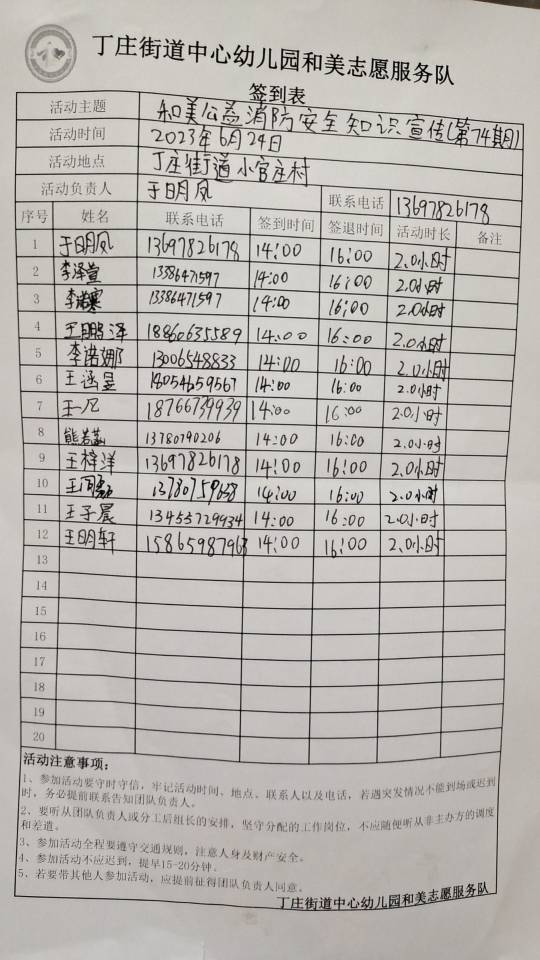 丁庄街道中心幼儿园和美志愿服务队
签到表
活动主题 和美公益消防安全知识宣传(第74期)
活动时间 2023年6月24日
活动地点 丁庄街道小官庄村
活动负责人 于明凤 联系电话 13697826178
序号 姓名 联系电话 签到时间 签退时间 活动时长 备注
1 于明凤 13697826178 14:00 16:00 2.0小时
2 李泽萱 13386471597 14:00 16:00 2.0小时
3 李诺寒 13386471597 14:00 16:00 2.0小时
4 王鹏泽 18860635589 14:00 16:00 2.0小时
5 李诺娜 13006548833 14:00 16:00 2.0小时
6 王涵昱 14:00 16:00 2.0小时
7 王一凡 18766739939 14:00 16:00 2.0小时
8 13780790206 14:00 16:00 2.0小时
9 王梓洋 13697826178 14:00 16:00 2.0小时
10 14:00 16:00 2.0小时
11 王子晨 13455729934 14:00 16:00 2.0小时
12 王明轩 15865987963 14:00 16:00 2.0小时
13
14
15
16
17
18
19
20
活动注意事项：
1、参加活动要守时守信，牢记活动时间、地点、联系人以及电话，若遇突发情况不能到场或迟到
时，务必提前联系告知团队负责人。
2、要听从团队负责人或分工后组长的安排，坚守分配的工作岗位，不应随便听从非主办方的调度
和差遣。
3、参加活动全程要遵守交通规则，注意人身及财产安全。
4、参加活动不应迟到，提早15-20分钟。
5、若要带其他人参加活动，应提前征得团队负责人同意。
丁庄街道中心幼儿园和美志愿服务队